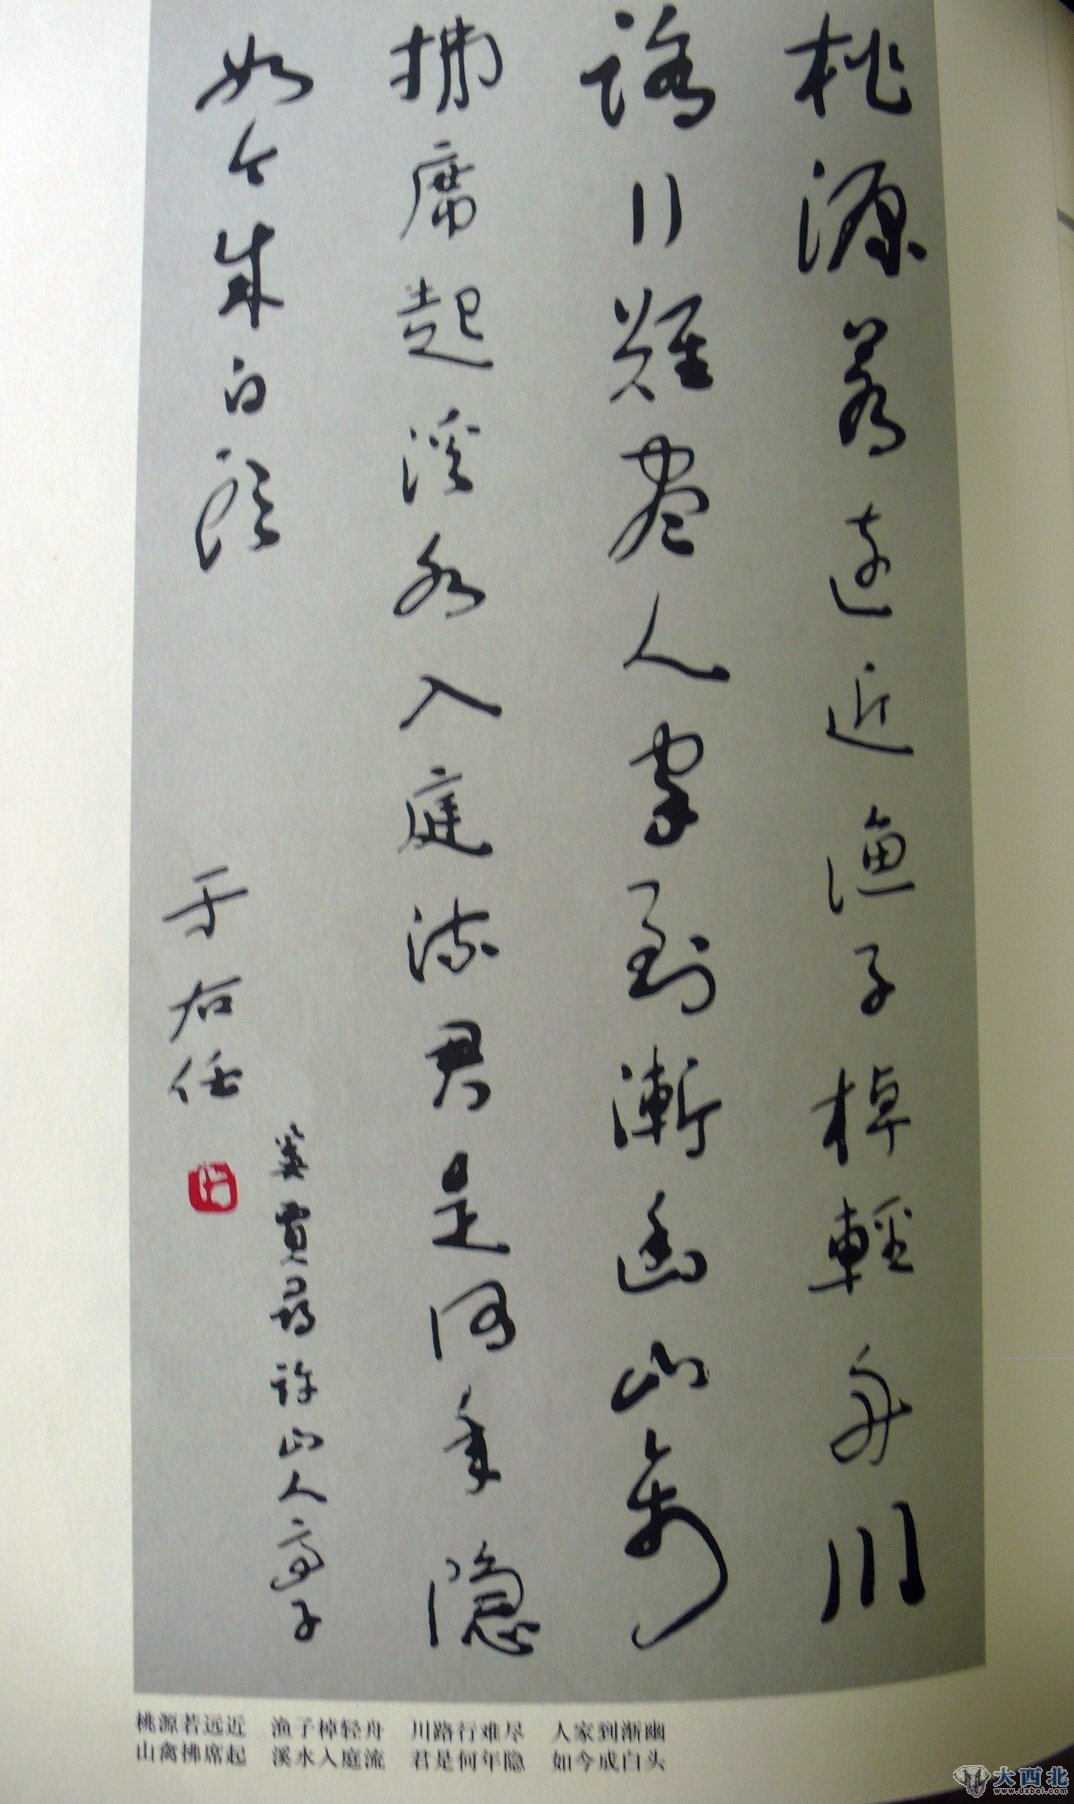 桃源若远近渔子棹輕舟川
路行難盡人家到漸幽山禽
拂席起溪水入庭流君是何年隐
如今成白頭
于右任
賈尋許山人亭子
桃源若远近 渔子棹轻舟 川路行难尽 人家到渐幽
山禽拂席起 溪水入庭流 君是何年隐 如今成白头
大西北
www.dxbei.com